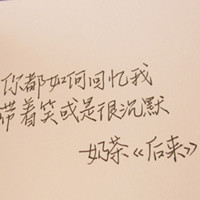 你都如何回忆我
带着笑或是很沉默
奶茶《后来》